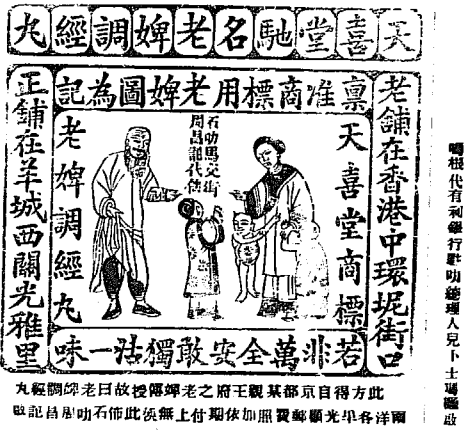 天喜堂馳名老婢調經丸
稟准商標用老婢圖為記
老舖在香港中環坭街口
天喜堂商標
石叻馬交街
周昌記代售
老婢調經丸
正舖在羊城西關光雅里
若非萬全安敢獨沽一味
此方得自京都某親王府之老婢傳授故曰老婢調經丸
南洋各阜光顧郵費照加依期付上無悞此佈石叻周昌記啟
代有利銀行駐叻總理人兒卜士